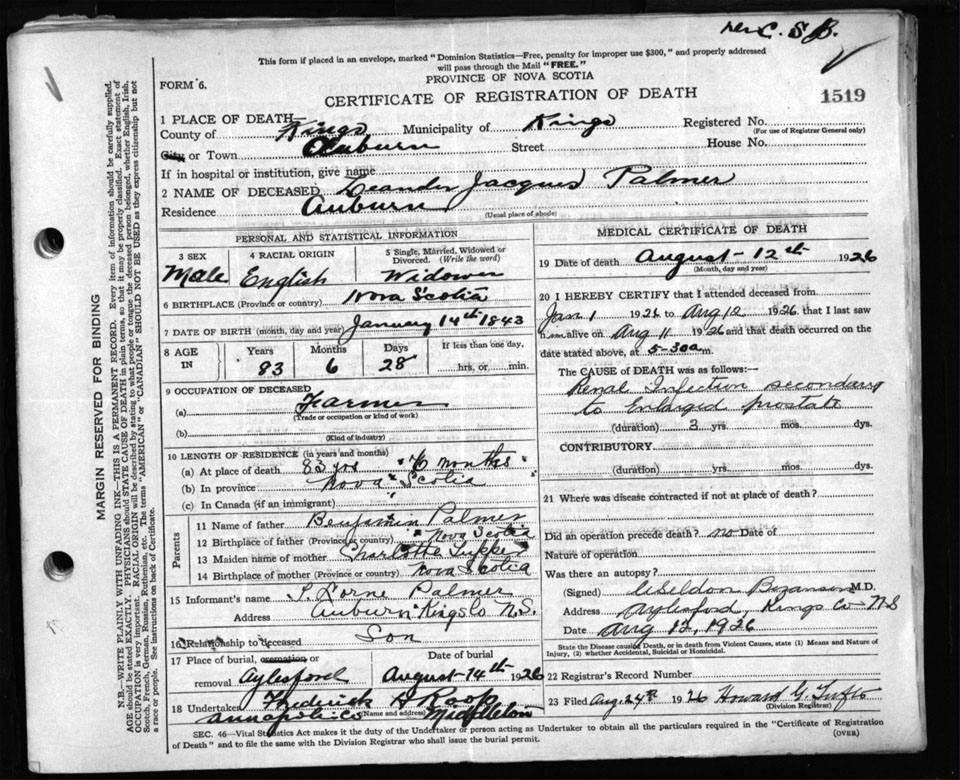 C. S. B.
This form if placed in an envelope, marked "Dominion Statistics—Free, penalty for improper use $300," and properly addressed
will pass through the Mail "FREE."
PROVINCE OF NOVA SCOTIA
FORM 6.
CERTIFICATE OF REGISTRATION OF DEATH
1519
1 PLACE OF DEATH
County of Kings Municipality of Kings Registered No.
(For use of Registrar General only)
City or Town Auburn Street House No.
If in hospital or institution, give name
2 NAME OF DECEASED Leander Jacques Palmer
Residence Auburn
(Usual place of abode)
PERSONAL AND STATISTICAL INFORMATION
3 SEX 4 RACIAL ORIGIN 5 Single, Married, Widowed or Divorced. (Write the word)
Male English Widower
6 BIRTHPLACE (Province or country) Nova Scotia
7 DATE OF BIRTH (month, day and year) January 14th 1843
8 AGE IN Years Months Days If less than one day,
83 6 28 hrs. or min.
9 OCCUPATION OF DECEASED
(a) Farmer
(Trade or occupation or kind of work)
(b)
(Kind of industry)
10 LENGTH OF RESIDENCE (in years and months)
(a) At place of death 83 yrs 6 months
(b) In province Nova Scotia
(c) In Canada (if an immigrant)
Parents
11 Name of father Benjamin Palmer
12 Birthplace of father (Province or country) Nova Scotia
13 Maiden name of mother Charlotte Tupper
14 Birthplace of mother (Province or country) Nova Scotia
15 Informant's name Lorne Palmer
Address Auburn Kings Co N.S.
16 Relationship to deceased Son
17 Place of burial, cremation or Date of burial
removal Aylesford August 14th 1926
18 Undertaker Fredrick H Roop
Annapolis Co (Name and address) Middleton
MEDICAL CERTIFICATE OF DEATH
19 Date of death August 12th 1926
(Month, day and year)
20 I HEREBY CERTIFY that I attended deceased from
Jan 1 1926 to Aug 12 1926 that I last saw
h im alive on Aug 11 1926 and that death occurred on
date stated above, at 5-30 a m.
The CAUSE OF DEATH was as follows:
Renal Infection secondary
to Enlarged prostate
(duration) 3 yrs. mos. dys.
CONTRIBUTORY
(duration) yrs. mos. dys.
21 Where was disease contracted if not at place of death?
Did an operation precede death? no Date of
Nature of operation
Was there an autopsy?
(Signed) M.D.
Address Aylesford, Kings Co NS
Date Aug 12, 1926
State the Disease causing Death, or in death from Violent Causes, state (1) Means and Nature of
Injury, (2) whether Accidental, Suicidal or Homicidal.
22 Registrar's Record Number
23 Filed Aug. 24th 1926 Howard G. Tufts
(Division Registrar)
SEC. 46—Vital Statistics Act makes it the duty of the Undertaker or person acting as Undertaker to obtain all the particulars required in the "Certificate of Registration
of Death" and to file the same with the Division Registrar who shall issue the burial permit.
(OVER)
MARGIN RESERVED FOR BINDING
N.B.—WRITE PLAINLY WITH UNFADING INK—THIS IS A PERMANENT RECORD. Every item of information should be carefully supplied.
AGE should be stated EXACTLY. PHYSICIANS should STATE CAUSE OF DEATH in plain terms, so that it may be properly classified. Exact statement of
OCCUPATION is very important. RACIAL ORIGIN will be described by stating to what people or tongue the deceased person belonged, whether English, Irish,
Scotch, French, German, Russian, Ruthenian, etc. The terms "AMERICAN" or "CANADIAN" SHOULD NOT BE USED as they express citizenship but not
a race or people. See instructions on back of Certificate.